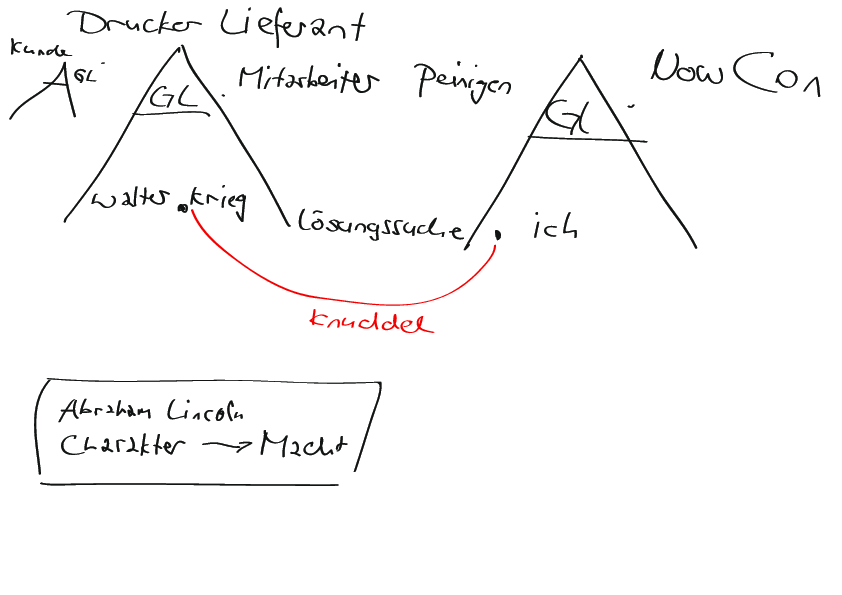 Drucker Lieferant
Kunde
GL
GL
Mitarbeiter Peinigen
NowCon
GL
walter krieg
Lösungssuche
ich
Knuddel
Abraham Lincoln
Charakter → Macht